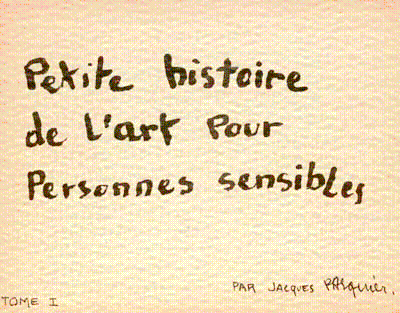 Petite histoire
de l'art pour
Personnes sensibles
PAR JACQUES PASquier.
TOME I